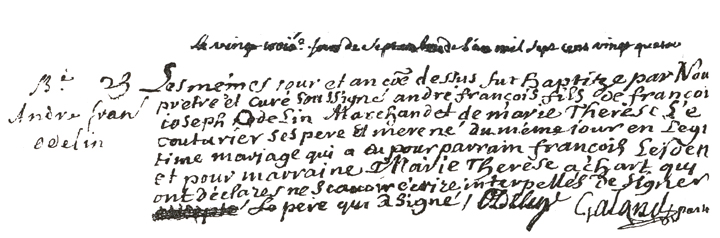 Le vingt trois.e jour de septembre de L'an mil sept cens vingt quatre
B.é 23
André fran.s
odelin
Les mémes jour et an cōe dessus fut Baptize par Nou
pretre et curé soussigné andré françois fils de françoi
joseph Odelin Marchand et de marie Therèse Le
couturier ses pere et mere né du méme jour en Legi
time mariage qui a eu pour parrain françois Lejden
et pour marraine Marie Therèse achart qui
ont déclares ne scavoir écrire interpelles de signer
Le pere qui a signé / Odelin